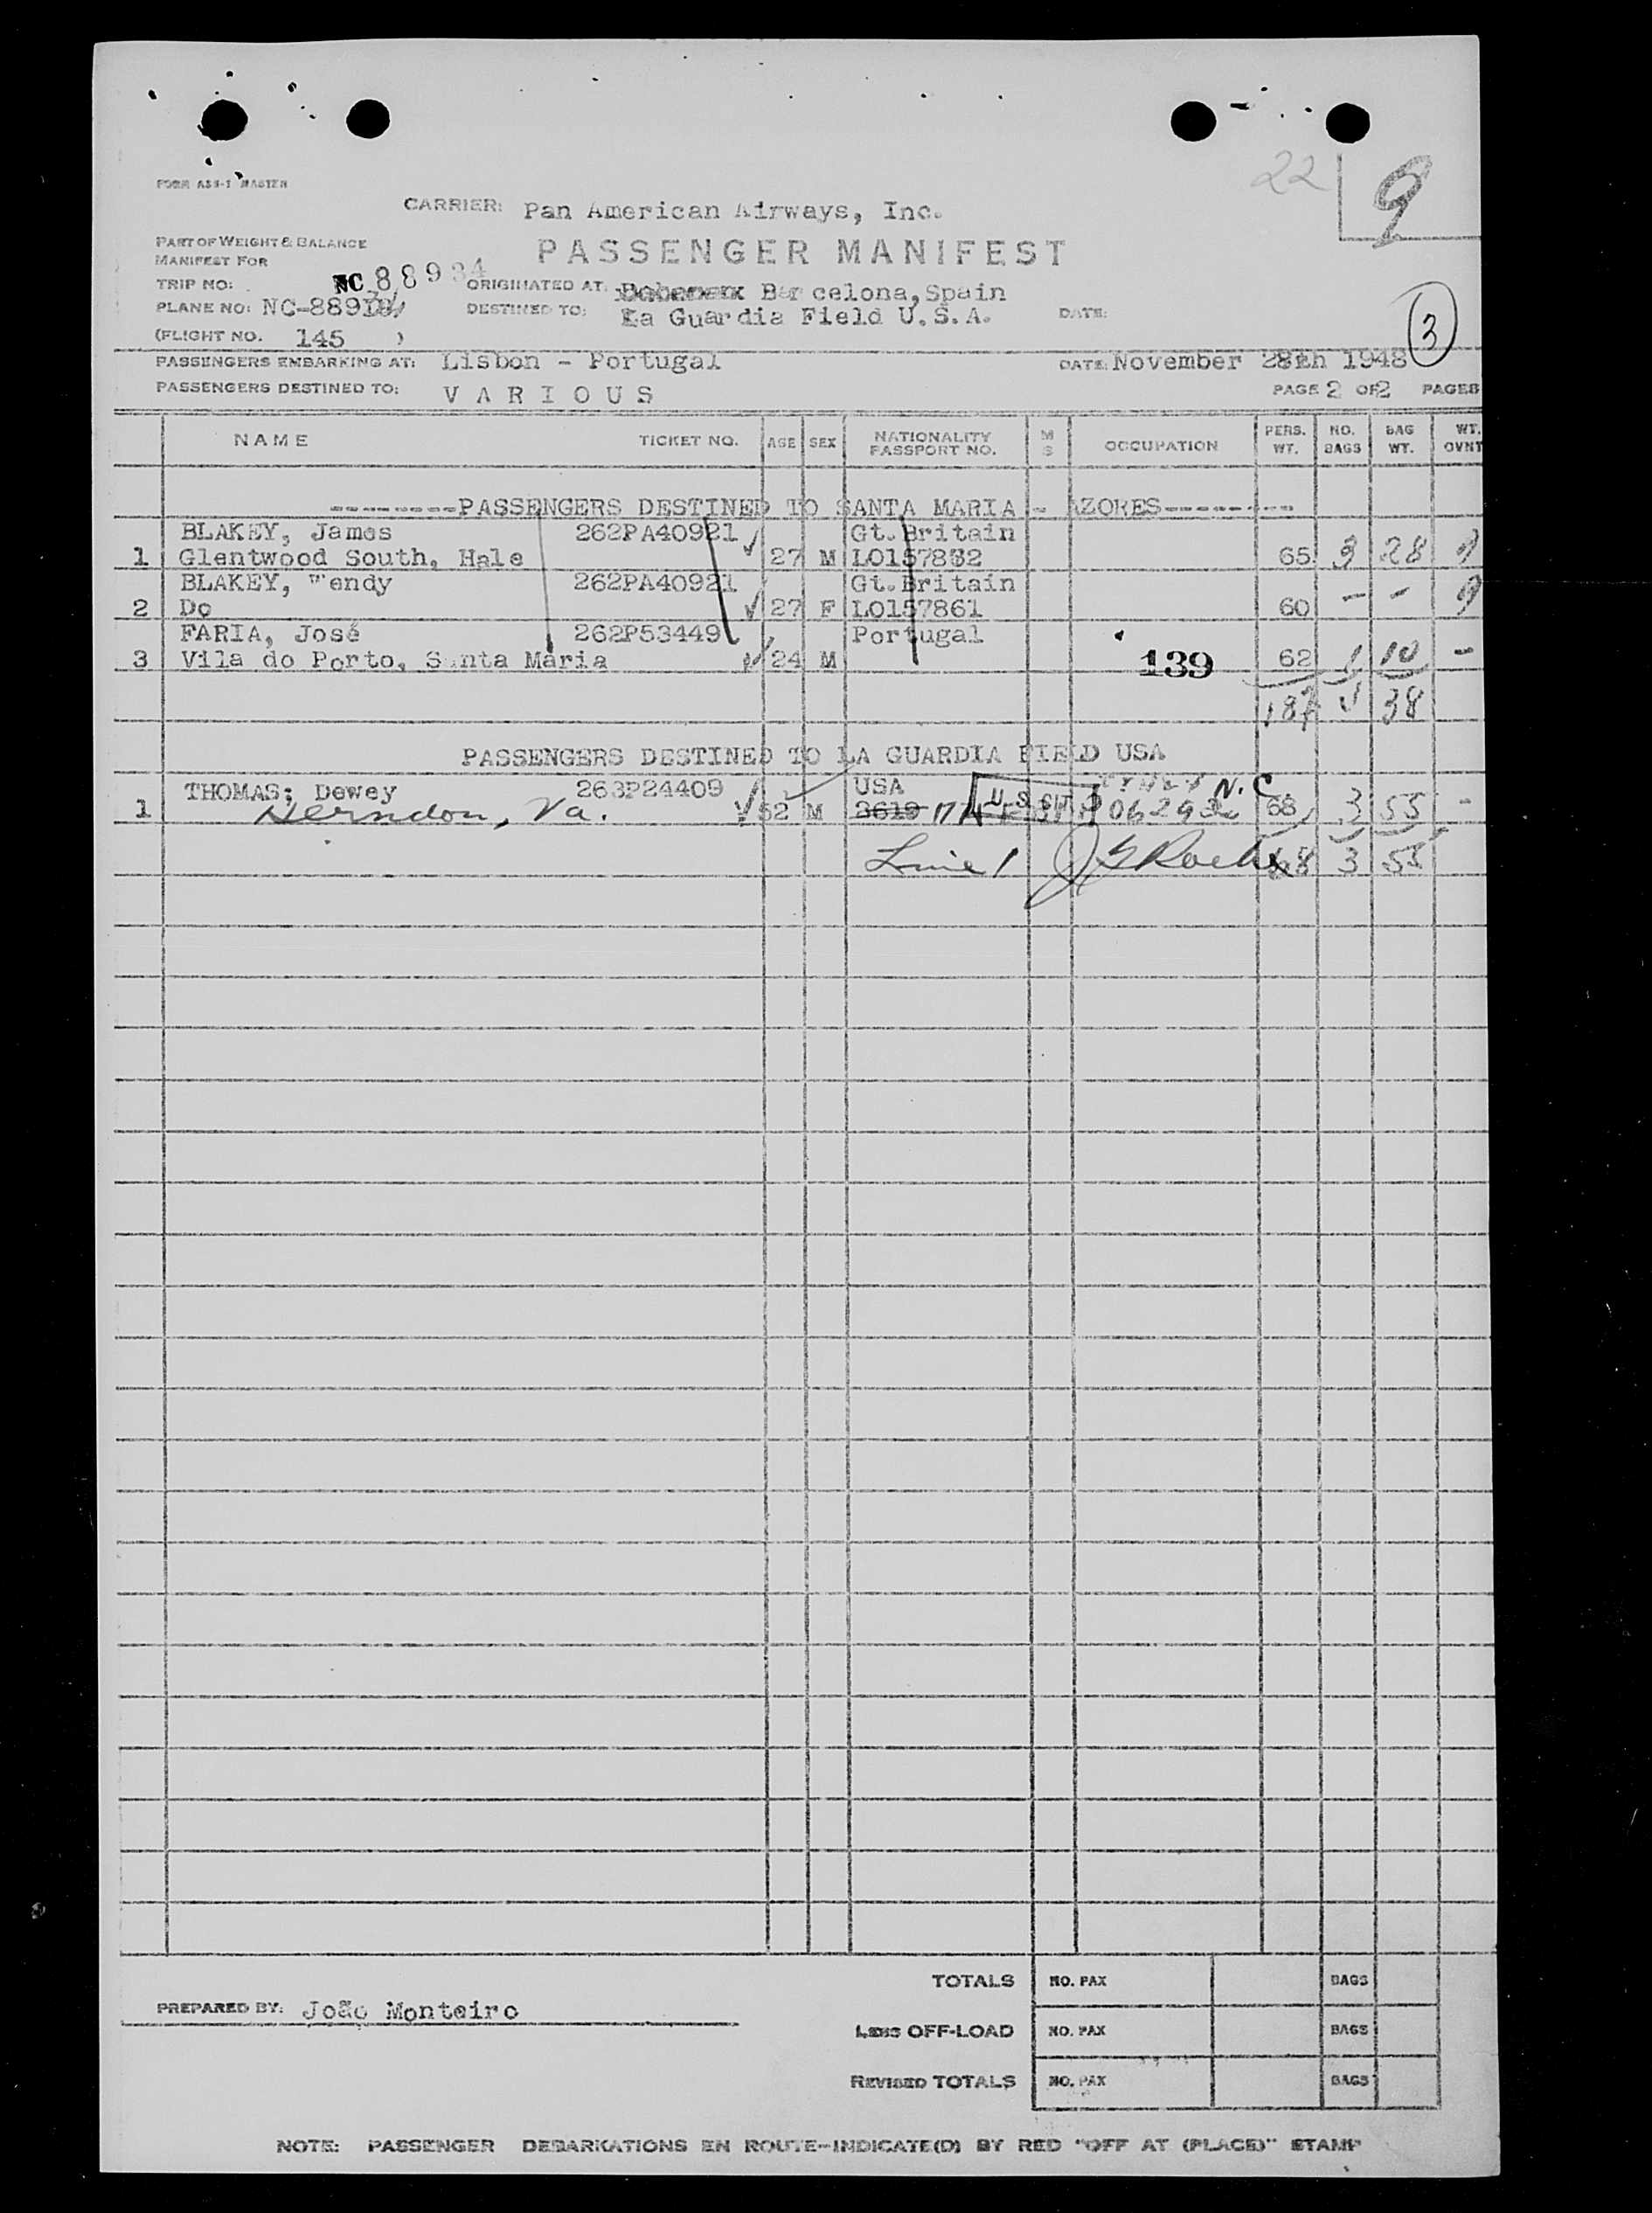 22 9
FORM ASS-1 MASTER
CARRIER: Pan American Airways, Inc.
PART OF WEIGHT & BALANCE
MANIFEST FOR
PASSENGER MANIFEST
TRIP NO: NC 88934 ORIGINATED AT: Barcelona, Spain
PLANE NO: NC-889 DESTINED TO: La Guardia Field U.S.A. DATE:
3
(FLIGHT NO. 145 )
PASSENGERS EMBARKING AT: Lisbon - Portugal DATE: November 28th 1948
PASSENGERS DESTINED TO: VARIOUS PAGE 2 OF 2 PAGES
NAME TICKET NO. AGE SEX NATIONALITY PASSPORT NO. M S OCCUPATION PERS. WT. NO. BAGS BAG WT. WT. OVNT
--------PASSENGERS DESTINED TO SANTA MARIA - AZORES--------
BLAKEY, James 262PA40921 Gt.Britain
1 Glentwood South, Hale 27 M 65 3 28 9
BLAKEY, Wendy 262PA40921 Gt.Britain
2 Do 27 F LO157861 60 - - 9
FARIA, José 262P53449 Portugal
3 Vila do Porto, Santa Maria 24 M 139 62 1 10 -
187 38
PASSENGERS DESTINED TO LA GUARDIA FIELD USA
THOMAS; Dewey 263P24409 USA N.C.
1 Herndon, Va. 52 M 3619 U.S. CIT. 68 3 55 -
Line 1 68 3 55
TOTALS NO. PAX BAGS
PREPARED BY: João Monteiro
LESS OFF-LOAD NO. PAX BAGS
REVISED TOTALS NO. PAX BAGS
NOTE: PASSENGER DEBARKATIONS EN ROUTE-INDICATE(D) BY RED "OFF AT (PLACE)" STAMP